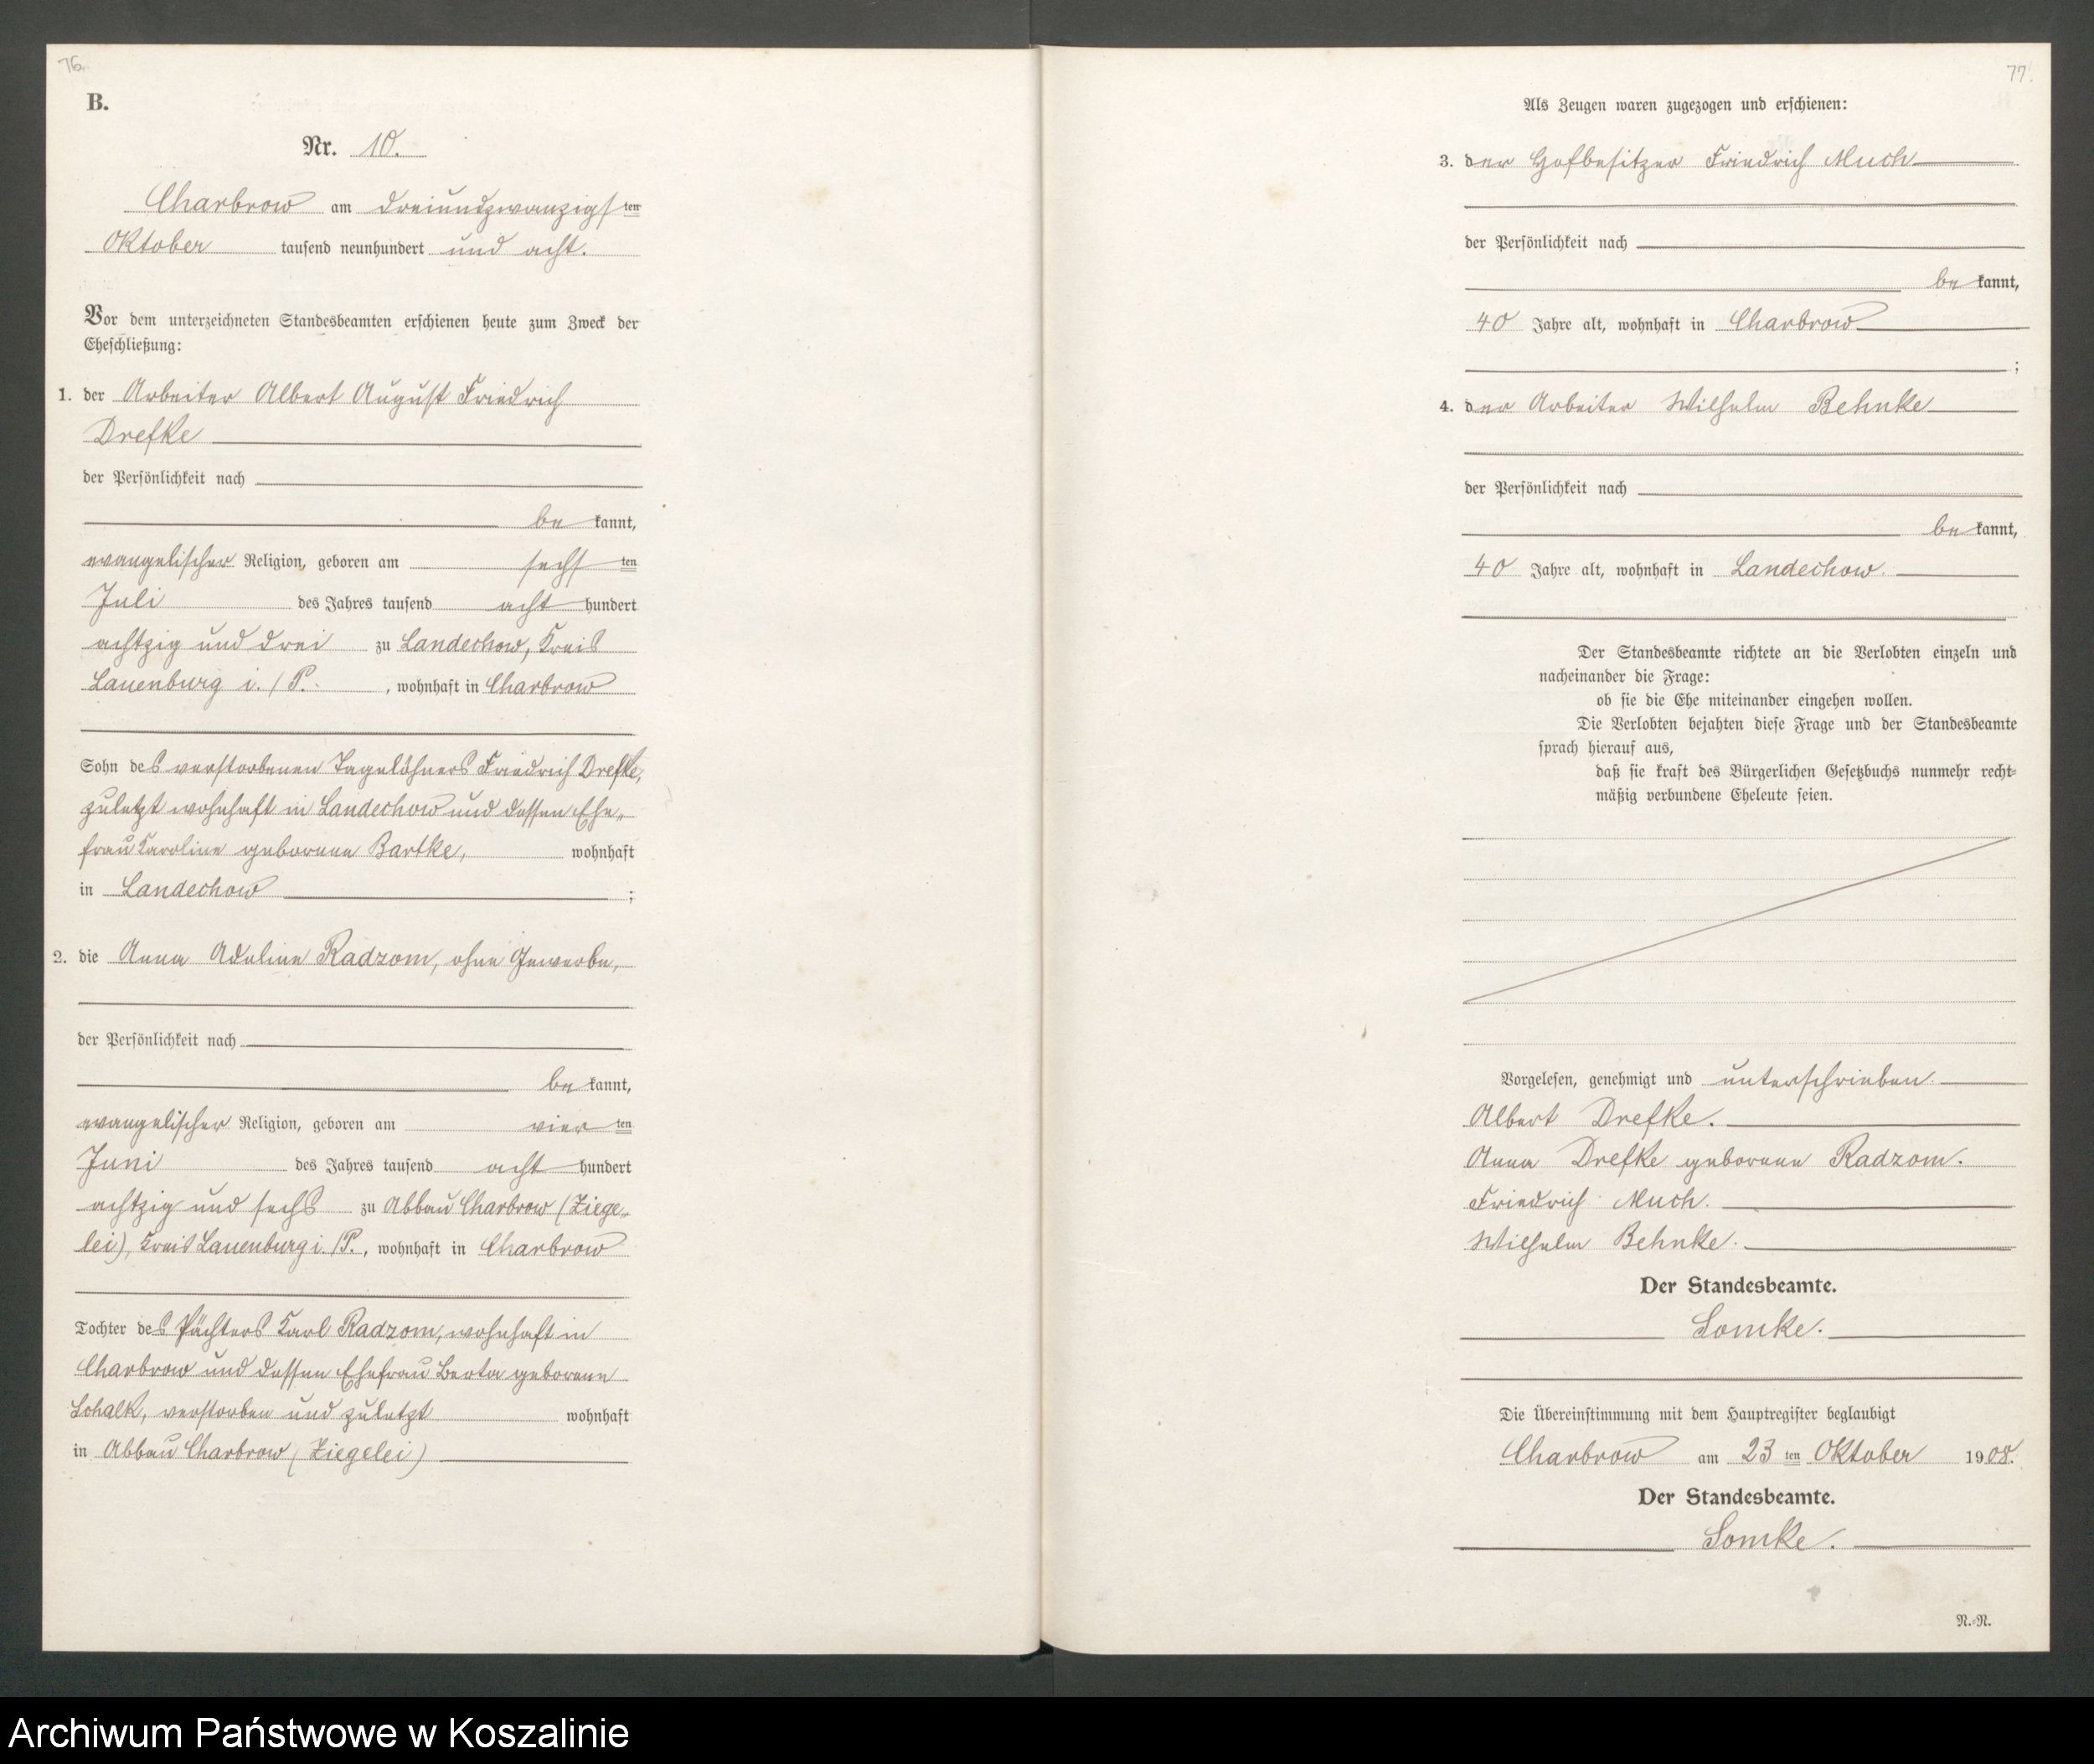 76.
B.
Nr. 10.
Charbrow am dreiundzwanzigsten
Oktober tausend neunhundert und acht.
Vor dem unterzeichneten Standesbeamten erschienen heute zum Zweck der
Eheschließung:
1. der Arbeiter Albert August Friedrich
Drefke
der Persönlichkeit nach
be kannt,
evangelischer Religion, geboren am sechsten
Juli des Jahres tausend acht hundert
achtzig und drei zu Landechow, Kreis
Lauenburg i./P. , wohnhaft in Charbrow
Sohn des verstorbenen Tagelöhners Friedrich Drefke,
zuletzt wohnhaft in Landechow und dessen Ehe„
frau Karoline geborene Bartke, wohnhaft
in Landechow ;
2. die Anna Adeline Radzom, ohne Gewerbe,
der Persönlichkeit nach
be kannt,
evangelischer Religion, geboren am vierten
Juni des Jahres tausend acht hundert
achtzig und sechs zu Abbau Charbrow (Ziege„
lei), Kreis Lauenburg i./P., wohnhaft in Charbrow
Tochter des Pächters Karl Radzom, wohnhaft in
Charbrow und dessen Ehefrau Berta geborene
Schalk, verstorben und zuletzt wohnhaft
in Abbau Charbrow (Ziegelei)
77.
Als Zeugen waren zugezogen und erschienen:
3. der Hofbesitzer Friedrich Much
der Persönlichkeit nach
be kannt,
40 Jahre alt, wohnhaft in Charbrow
;
4. der Arbeiter Wilhelm Behnke
der Persönlichkeit nach
be kannt,
40 Jahre alt, wohnhaft in Landechow.
Der Standesbeamte richtete an die Verlobten einzeln und
nacheinander die Frage:
ob sie die Ehe miteinander eingehen wollen.
Die Verlobten bejahten diese Frage und der Standesbeamte
sprach hierauf aus,
daß sie kraft des Bürgerlichen Gesetzbuchs nunmehr recht-
mäßig verbundene Eheleute seien.
Vorgelesen, genehmigt und unterschrieben.
Albert Drefke.
Anna Drefke geborene Radzom.
Friedrich Much.
Wilhelm Behnke.
Der Standesbeamte.
Lomke.
Die Übereinstimmung mit dem Hauptregister beglaubigt
Charbrow am 23 ten Oktober 1908.
Der Standesbeamte.
Lomke.
N.-N.
Archiwum Państwowe w Koszalinie